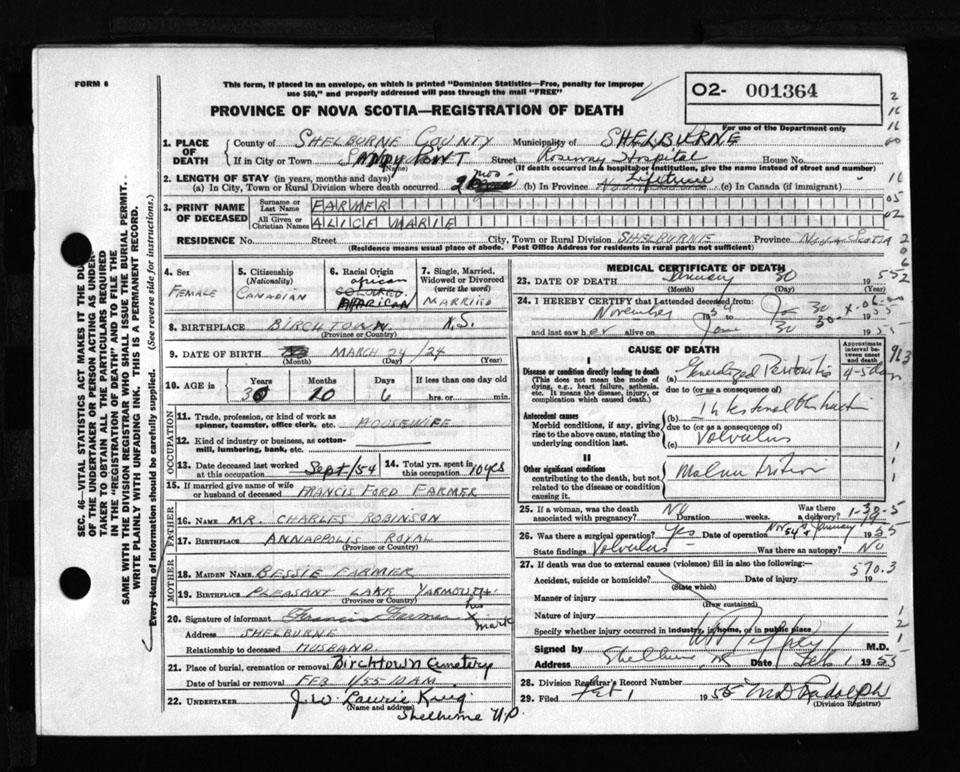 FORM 6
This form, if placed in an envelope, on which is printed "Dominion Statistics—Free, penalty for improper
use $50," and property addressed will pass through the mail "FREE"
O2- 001364
For use of the Department only
PROVINCE OF NOVA SCOTIA—REGISTRATION OF DEATH
1. PLACE OF DEATH
County of SHELBURNE COUNTY Municipality of SHELBURNE
If in City or Town SANDY POINT Street Roseway Hospital House No.
(Name) (If death occurred in a hospital or institution, give the name instead of street and number)
2. LENGTH OF STAY (in years, months and days)
(a) In City, Town or Rural Division where death occurred 2 mos (b) In Province Lifetime (c) In Canada (if immigrant)
3. PRINT NAME OF DECEASED
Surname or Last Name FARMER
All Given or Christian Names ALICE MARIE
RESIDENCE No. Street City, Town or Rural Division SHELBURNE Province NOVA SCOTIA
(Residence means usual place of abode. Post Office Address for residents in rural parts not sufficient)
4. Sex
FEMALE
5. Citizenship (Nationality)
CANADIAN
6. Racial Origin
African
COLOURED
AFRICAN
7. Single, Married, Widowed or Divorced (write the word)
MARRIED
8. BIRTHPLACE BIRCHTOWN N.S.
(Province or Country)
9. DATE OF BIRTH MARCH 24/24
(Month) (Day) (Year)
10. AGE in Years Months Days If less than one day old
30 10 6 hrs. or min.
OCCUPATION
11. Trade, profession, or kind of work as spinner, teamster, office clerk, etc. HOUSEWIFE
12. Kind of industry or business, as cotton-mill, lumbering, bank, etc.
13. Date deceased last worked at this occupation Sept/54 14. Total yrs. spent in this occupation 10 yrs
15. If married give name of wife or husband of deceased FRANCIS FORD FARMER
FATHER
16. Name MR. CHARLES ROBINSON
17. BIRTHPLACE ANNAPPOLIS ROYAL
MOTHER
18. MAIDEN NAME BESSIE FARMER
19. BIRTHPLACE PLEASANT LAKE YARMOUTH
(Province or Country)
20. Signature of informant Francis Farmer his X mark
Address SHELBURNE
Relationship to deceased HUSBAND
21. Place of burial, cremation or removal Birchtown Cemetery
Date of burial or removal FEB 1/55-10 AM.
22. UNDERTAKER J.W. Lawrie King
Shelburne N.S.
MEDICAL CERTIFICATE OF DEATH
23. DATE OF DEATH January 30 1955
(Month) (Day)
24. I HEREBY CERTIFY that I attended deceased from
November 1954 Jan 30 1955
and last saw her alive on Jan 30 1955
CAUSE OF DEATH
Approximate interval between onset and death
I
Disease or condition directly leading to death
(This does not mean the mode of dying, e.g., heart failure, asthenia, etc. It means the disease, injury, or complication which caused death.)
(a) Generalized Peritonitis 4-5 days
due to (or as a consequence of)
Antecedent causes
Morbid conditions, if any, giving rise to the above cause, stating the underlying condition last.
(b) Intestinal Obstruction
due to (or as a consequence of)
(c) Volvulus
II
Other significant conditions contributing to the death, but not related to the disease or condition causing it.
Malnutrition
25. If a woman, was the death associated with pregnancy? No Duration weeks. Was there a delivery?
26. Was there a surgical operation? Yes Date of operation Nov 54 & January 1955
State findings Volvulus Was there an autopsy? No
27. If death was due to external causes (violence) fill in also the following:—
Accident, suicide or homicide? Date of injury 19
(State which)
Manner of injury
(How sustained)
Nature of injury
Specify whether injury occurred in industry, in home, or in public place
Signed by M.D.
Address Shelburne, NS Date Feb 1 1955
28. Division Registrar's Record Number
29. Filed Feb 1 1955
(Division Registrar)
SEC. 46—VITAL STATISTICS ACT MAKES IT THE DUTY
OF THE UNDERTAKER OR PERSON ACTING AS UNDER-
TAKER TO OBTAIN ALL THE PARTICULARS REQUIRED
IN THE "REGISTRATION OF DEATH" AND TO FILE THE
SAME WITH THE DIVISION REGISTRAR WHO SHALL ISSUE THE BURIAL PERMIT.
WRITE PLAINLY WITH UNFADING INK. THIS IS A PERMANENT RECORD.
Every item of information should be carefully supplied. (See reverse side for instructions.)
913
570.3